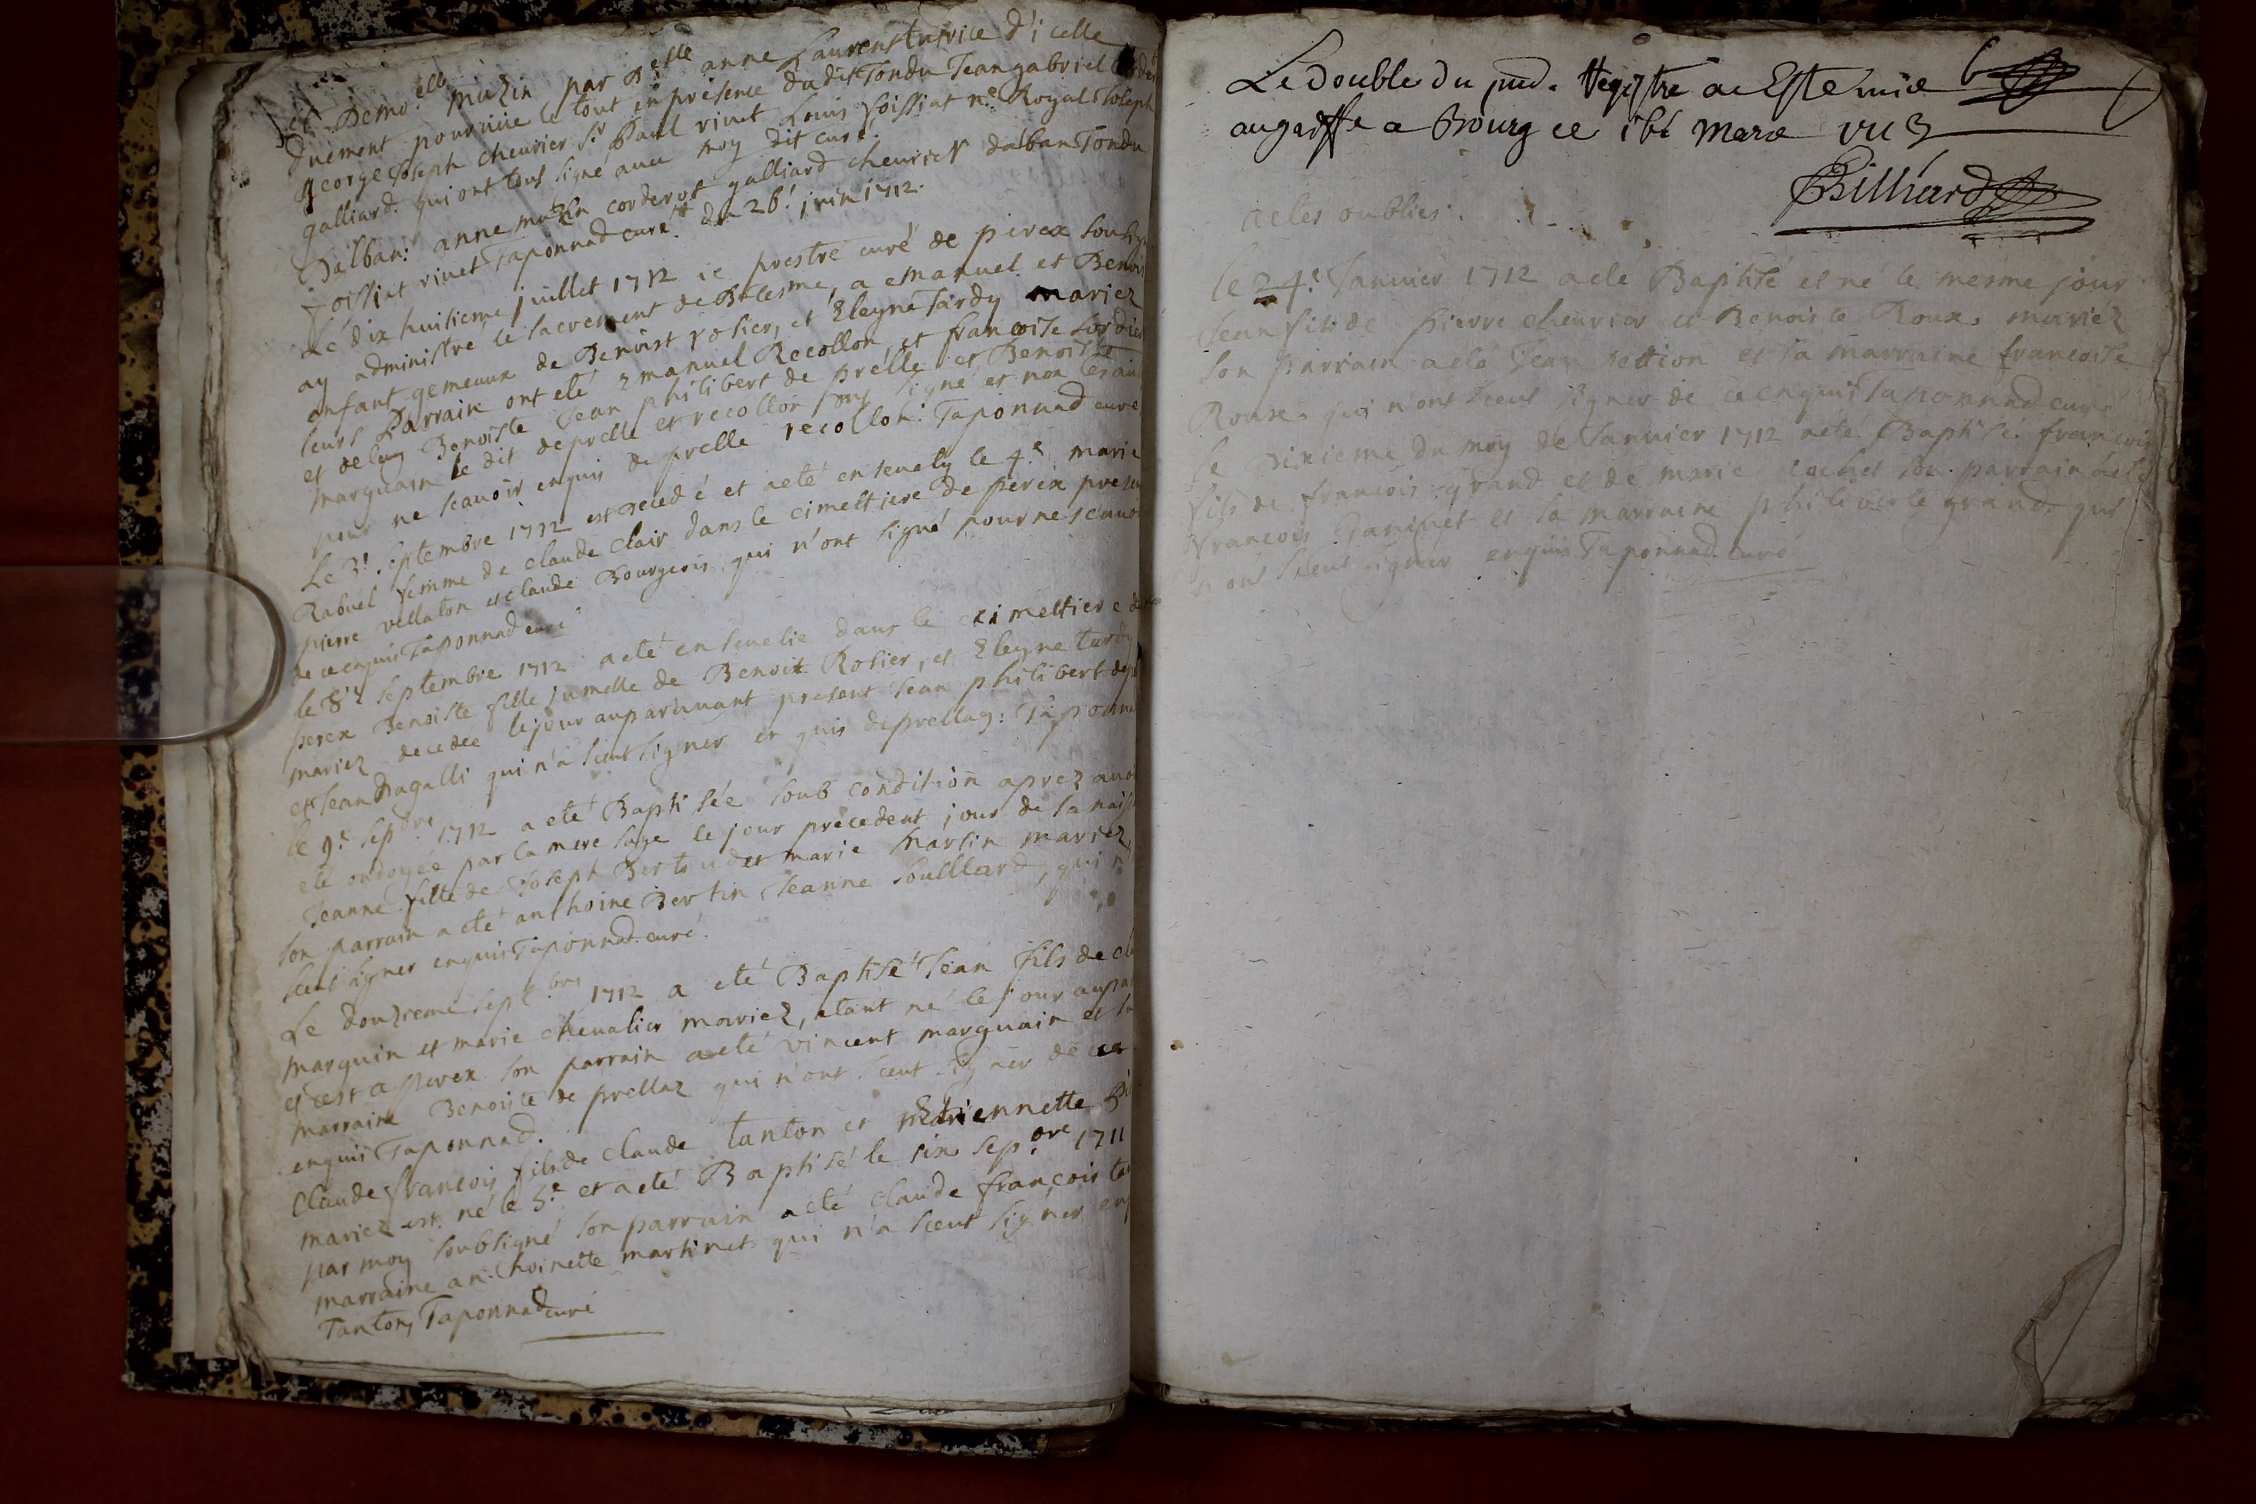 et Demo.elle muzin par D.elle anne Laurens tutrice d'icelle
duement pourvüe le tout en présence dudit Tondu Jean gabriel
george Joseph cheurier Sr. Paul rivet Louis foissiat n.e Royal Joseph
galliard. qui ont tous signé avec moy dit curé.
Dalban. anne muzin corderot galliard cheurier dalban Tondu
foissiat rivet Taponnad curé. du 26.e juin 1712.
Le dix huitieme juillet 1712 ie prestre curé de perex soub
ay administré le sacrement de Btesme, a emanuel et Benois
enfant gemeaux de Benoist rosier, et Eleyne tardy mariez
leurs Parrain ont eté Emanuel Recollon, et francoise
et de laug Benoiste Jean philibert de prélle et Benoiste
marguain le dit de prelle et recollon sous signé et non les au
pour ne scavoir enquis de prelle recollon. Taponnad curé
Le 3.e septembre 1712 est decedé et a eté ensevely le 4.e marie
Rabuel femme de claude clair dans le cimettiere de perex presen
pierre vellaton et claude Bourgeois qui n'ont signé pour ne scavo
de ce enquis Taponnad curé
le 8.e septembre 1712 a eté ensevelie dans le cimettiere de
perex Benoiste fille jumelle de Benoit Rosier, et Eleyne tardy
mariez decedée le jour auparavant present Jean philibert dep
et Jean Dagalli qui n'a sceut signer enquis deprellay: Taponna
le 9.e sepbre 1712 a eté Baptisée soub condition aprez avoi
eté ondoyée par la mere sage le jour precedent jour de sa nais
Jeanne fille de Joseph Bertoud et marie martin mariez,
son parrain a eté anthoine Bertin, Jeanne soulliard, qui n
sceut signer enquis Taponnad curé.
Le douzieme septbre 1712 a eté Baptisé Jean fils de cla
marguin et marie chevalier mariez, etant né le jour aupar
et cest a perex son parrain a eté vincent marguain et sa
marraine Benoiste de prellaz qui n'ont sceut signer de ce
enquis Taponnad.
Claude françois fils de claude tanton et Etiennette
mariez est né le 5.e et a eté Baptisé le six sepbre 1711
par moy soubsigné son parrain a eté claude françois tan
marraine anthoinette martinet qui n'a sceut signer enq
Tanton, Taponnad curé
Le double du pnd. Registre a Esté mis
au greffe a Bourg ce 16e Mars
Billiard
actes oubliés.
le 24.e Janvier 1712 a eté Baptisé et né le mesme jour
Jean fils de pierre cheurier et Benoiste Roux, mariéz
son parrain a eté Jean Pettion et sa marraine francoise
Roux, qui n'ont sceut signer de ce enquis Taponnad curé
le dixieme du moy de Janvier 1712 a eté Baptisé francois
fils de francois grand et de marie son parrain a eté
francois et sa marraine philiberte grand, qui
n'ont sceut signer enquis Taponnad curé